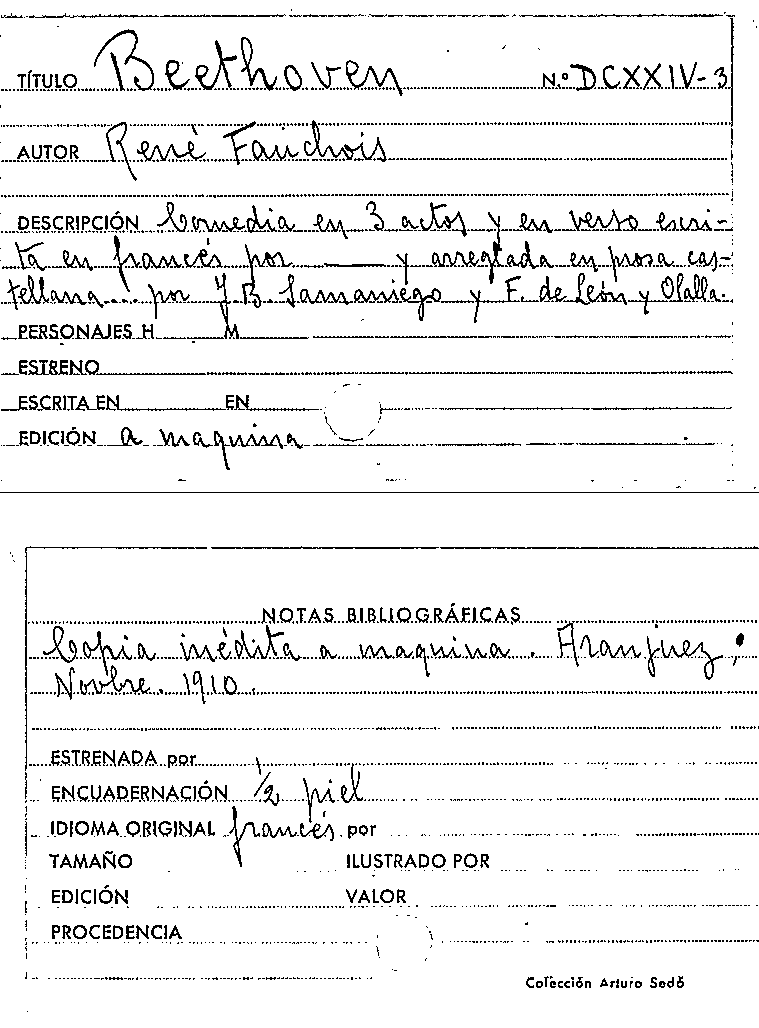 TÍTULO Beethoven N.º DCXXIV-3
AUTOR René Fauchois
DESCRIPCIÓN Comedia en 3 actos y en verso escri-
ta en francés por ____ y arreglada en prosa cas-
tellana... por J. B. Samaniego y F. de León y Olalla.
PERSONAJES H M
ESTRENO
ESCRITA EN EN
EDICIÓN a maquina
NOTAS BIBLIOGRÁFICAS
Copia inédita a maquina. Aranjuez;
Novbre. 1910.
ESTRENADA por
ENCUADERNACIÓN 1/2 piel
IDIOMA ORIGINAL francés por
TAMAÑO ILUSTRADO POR
EDICIÓN VALOR
PROCEDENCIA
Colección Arturo Sedó